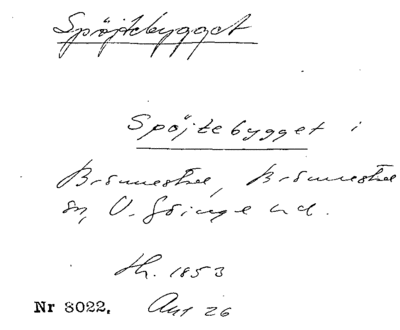 Spöjtebygget
Spöjtebygget i
Brömsestad, Brömsestad
sn, V. Göinge hd.
Hh. 1853
Nr 8022. Ant 26